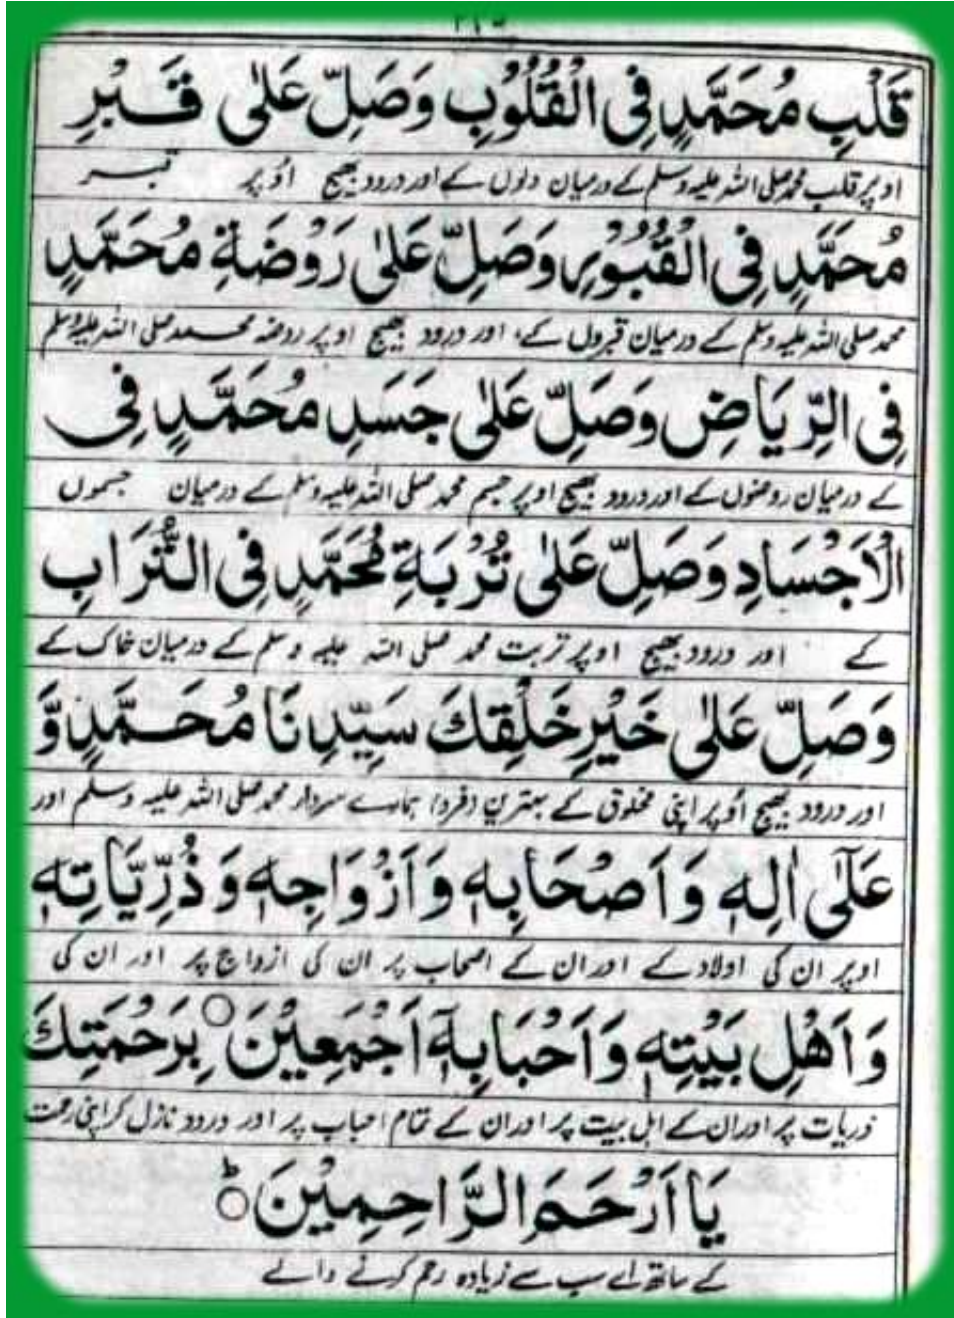 قَلْبِ مُحَمَّدٍ فِی الْقُلُوْبِ وَصَلِّ عَلٰی قَبْرِ
اوپر قلب محمد صلی اللہ علیہ وسلم کے درمیان دلوں کے اور درود بھیج اُوپر قبر
مُحَمَّدٍ فِی الْقُبُوْرِ وَصَلِّ عَلٰی رَوْضَةِ مُحَمَّدٍ
محمد صلی اللہ علیہ وسلم کے درمیان قبروں کے، اور درود بھیج اوپر روضہ محمد صلی اللہ علیہ وسلم
فِی الرِّيَاضِ وَصَلِّ عَلٰی جَسَدِ مُحَمَّدٍ فِی
کے درمیان روضوں کے اور درود بھیج اوپر جسم محمد صلی اللہ علیہ وسلم کے درمیان جسموں
الْاَجْسَادِ وَصَلِّ عَلٰی تُرْبَةِ مُحَمَّدٍ فِی التُّرَابِ
کے اور درود بھیج اوپر تربت محمد صلی اللہ علیہ وسلم کے درمیان خاک کے
وَصَلِّ عَلٰی خَيْرِ خَلْقِكَ سَيِّدِنَا مُحَمَّدٍ وَّ
اور درود بھیج اُوپر اپنی مخلوق کے بہترین (فرد) ہمارے سردار محمد صلی اللہ علیہ وسلم اور
عَلٰٓی اٰلِهٖ وَاَصْحَابِهٖ وَاَزْوَاجِهٖ وَذُرِّيَّاتِهٖ
اوپر ان کی اولاد کے اور ان کے اصحاب پر ان کی ازواج پر اور ان کی
وَاَهْلِ بَيْتِهٖ وَاَحْبَابِهٖٓ اَجْمَعِيْنَ ○ بِرَحْمَتِكَ
ذریات پر اور ان کے اہل بیت پر اور ان کے تمام احباب پر اور درود نازل کر اپنی رحمت
يَا اَرْحَمَ الرَّاحِمِيْنَ ○ؕ
کے ساتھ اے سب سے زیادہ رحم کرنے والے